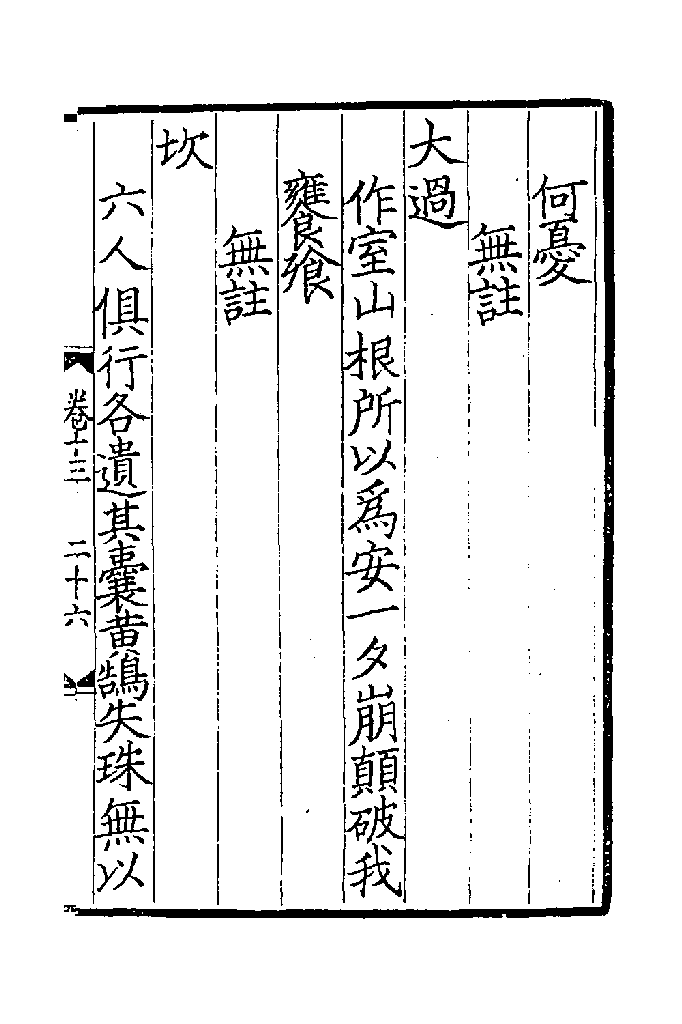 何憂
無註
大過
作室山根所以爲安一夕崩顛破我
饔飧
無註
坎
六人俱行各遺其囊黃鵠失珠無以
卷上三 二十六